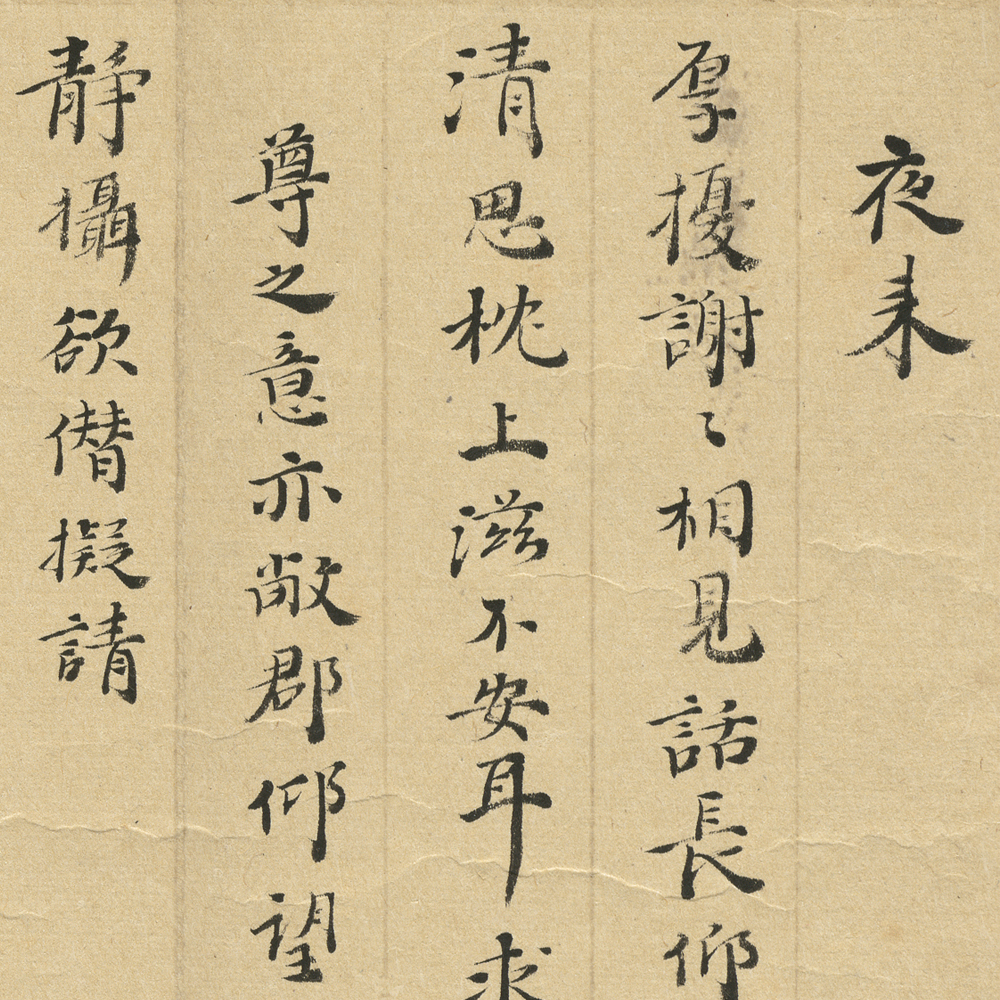 夜来
厚擾謝〻相見話長仰
清思枕上滋不安耳求
尊之意亦敝郡仰望
静攝欲僣擬請